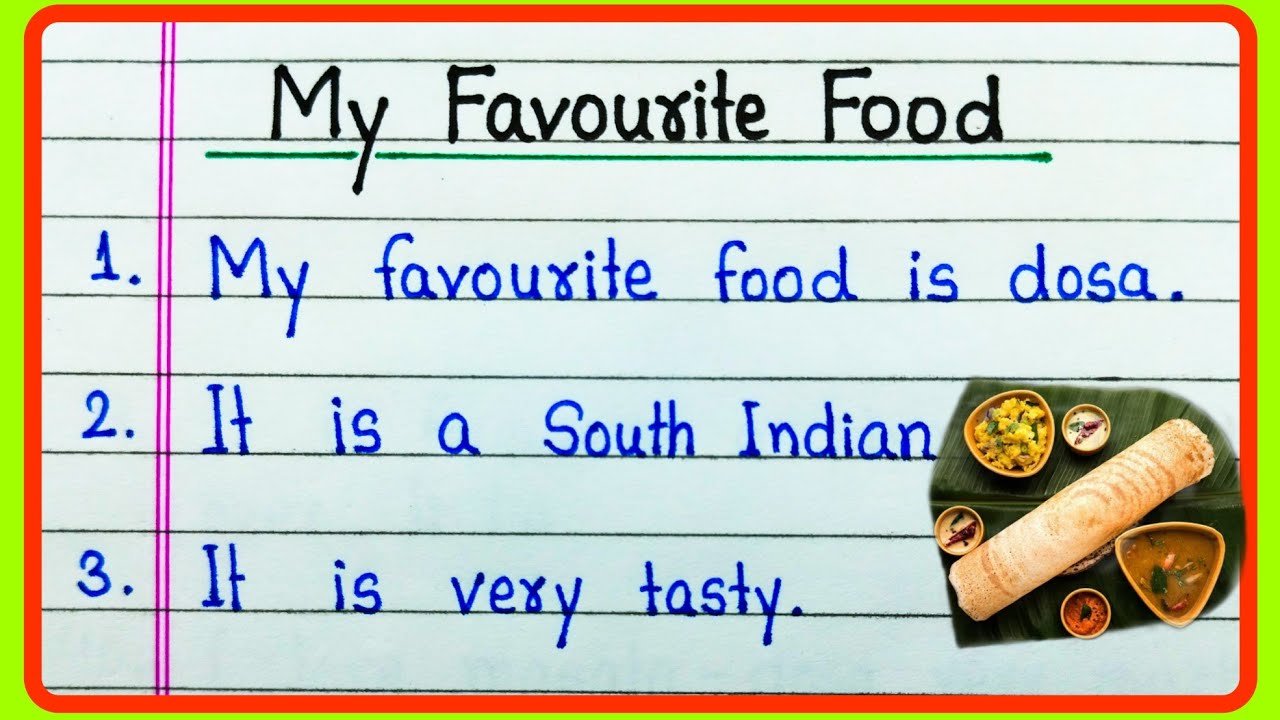 My Favourite Food
1. My favourite food is dosa.
2. It is a South Indian
3. It is very tasty.